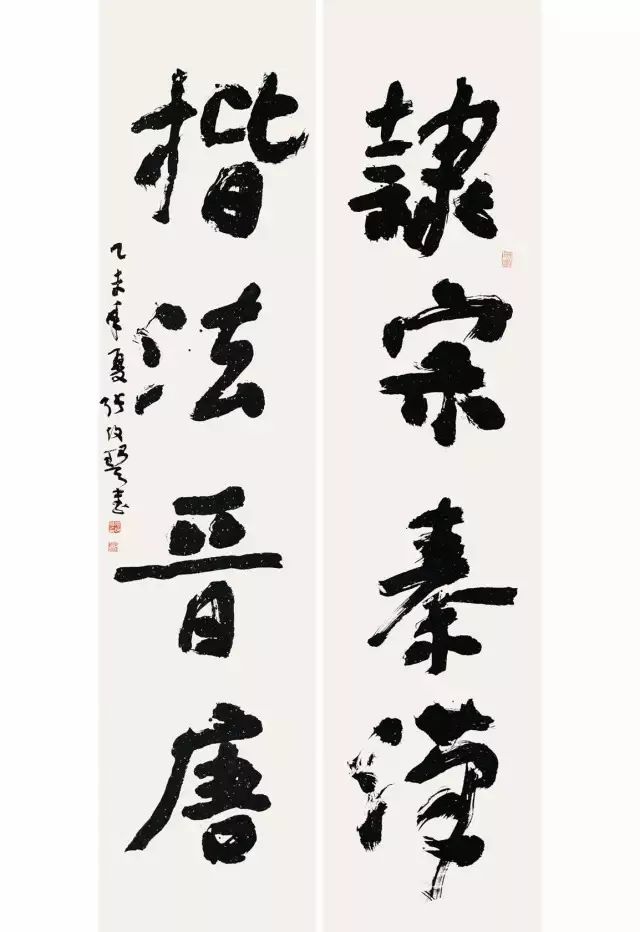 隸宗秦漢
楷法晉唐
乙未年夏張仗賢書